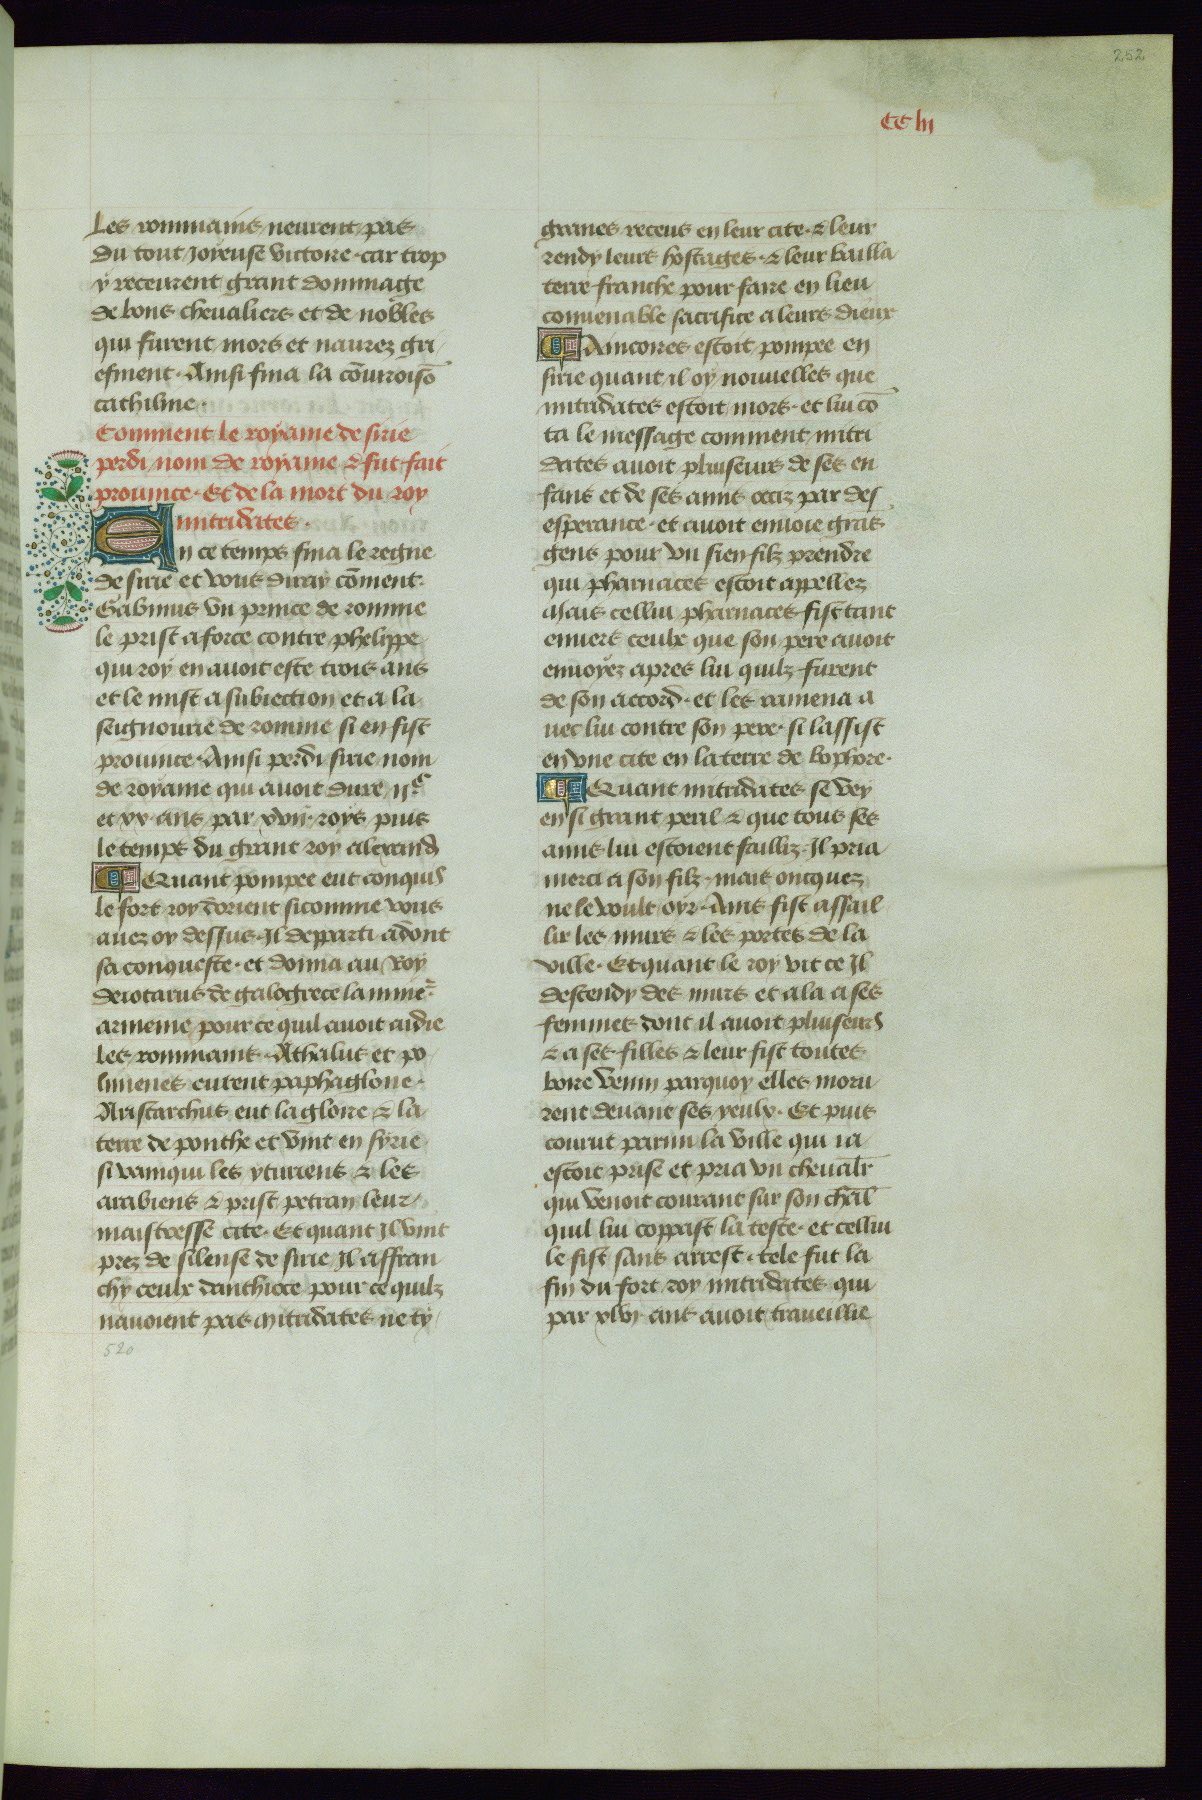 252
CC lii
Les rommains neurent pas
du tout Joyeuse victoire · car trop
y receurent grant dommage
de bons cheualiers et de nobles
qui furent mors et naurez gri
efment · Ainsi fina la cōuroisō
cathiline ·
Comment le royame de sirie
perdi nom de royame & fut fait
prouince · Et de la mort du roy
mitridates ·
En ce temps fina le regne
de sirie et vous diray cōment ·
Gabinus vn prince de romme
le prist a force contre phelippe
qui roy en auoit este trois ans
et le mist a subiection et a la
seignourie de romme si en fist
prouince · Ainsi perdi sirie nom
de royame qui auoit dure ijᶜ
et xx · ans par xvij · roys puis
le temps du grant roy alexand
Quant pompee eut conquis
le fort roy dorient sicomme vous
auez oy dessus · Il departi adont
sa conqueste · et donna au Roy
deiotarus de galogrece la mine ·
armenie pour ce quil auoit aidie
les rommains · Athalus et po
limenes eurent paphaglone ·
Aristarchus eut la gloire & la
terre de ponthe et vint en syrie
si vainqui les yturiens & les
arabiens & prist petran leur
maistresse cite · Et quant Il vint
prez de silense de sirie Il affran
chy ceulx danthioce pour ce quilz
nauoient pas mitridates ne ty
520
granes receus en leur cite · & leur
rendy leurs hostages · & leur bailla
terre franche pour faire en lieu
conuenable sacrifice a leurs dieux
Aincores estoit pompee en
sirie quant il oy nouuelles que
mitridates estoit mors · et lui cō
ta le message comment mitri
dates auoit pluiseurs de ses en
fans et de ses amis occiz par des
esperance · et auoit enuoie gras
gens pour vn sien filz prendre
qui pharnaces estoit appellez
Mais cellui pharnaces fist tant
enuers ceulx que son pere auoit
enuoyez apres lui quilz furent
de son accord · et les ramena a
uec lui contre son pere · si lassist
en vne cite en la terre de bophore ·
Quant mitridates se vey
en si grant peril & que tous ses
amis lui estoient failliz · Il pria
merci a son filz · mais oncquez
ne le voult oyr · Ains fist assail
lir les murs & les portes de la
ville · Et quant le roy vit ce Il
descendy des murs et ala a ses
femmes dont il auoit pluiseurs
& a ses filles & leur fist toutes
boire venin parquoy elles moru
rent deuant ses yeulx · Et puis
courut parmi la ville qui ia
estoit prise et pria vn cheualr
qui venoit courant sur son chāl
quil lui coppast la teste · et cellui
le fist sans arrest · tele fut la
fin du fort roy mitridates qui
par xlvj ans auoit traueillie